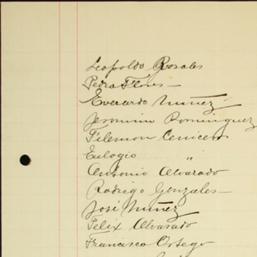 Leopoldo Rosales
Pedro Flores
Everardo Nuñez
Jeronimo Dominguez
Filemon Cenicero
Eulogio "
Antonio Alvarado
Rodrigo Gonzales
José Nuñez
Felix Alvarado
Francisco Ortego